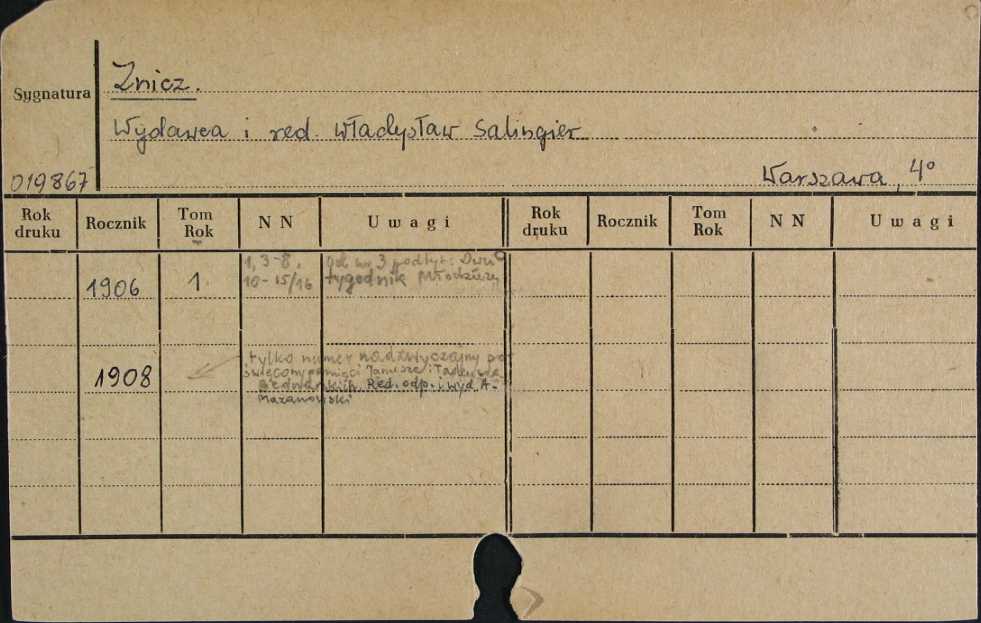 Znicz.
Sygnatura
Wydawca i red. Władysław Salingier
019867
Warszawa, 4°
Rok druku Rocznik Tom Rok N N Uwagi Rok druku Rocznik Tom Rok N N Uwagi
1, 3-8, od nr 3 podtyt: Dwu
1906 1. 10-15/16 tygodnik młodzieży
tylko numer nadzwyczajny poś
1908 święcony pamięci Janusza i Tadeusza
Red. odp. i wyd. A-
Mazanowski